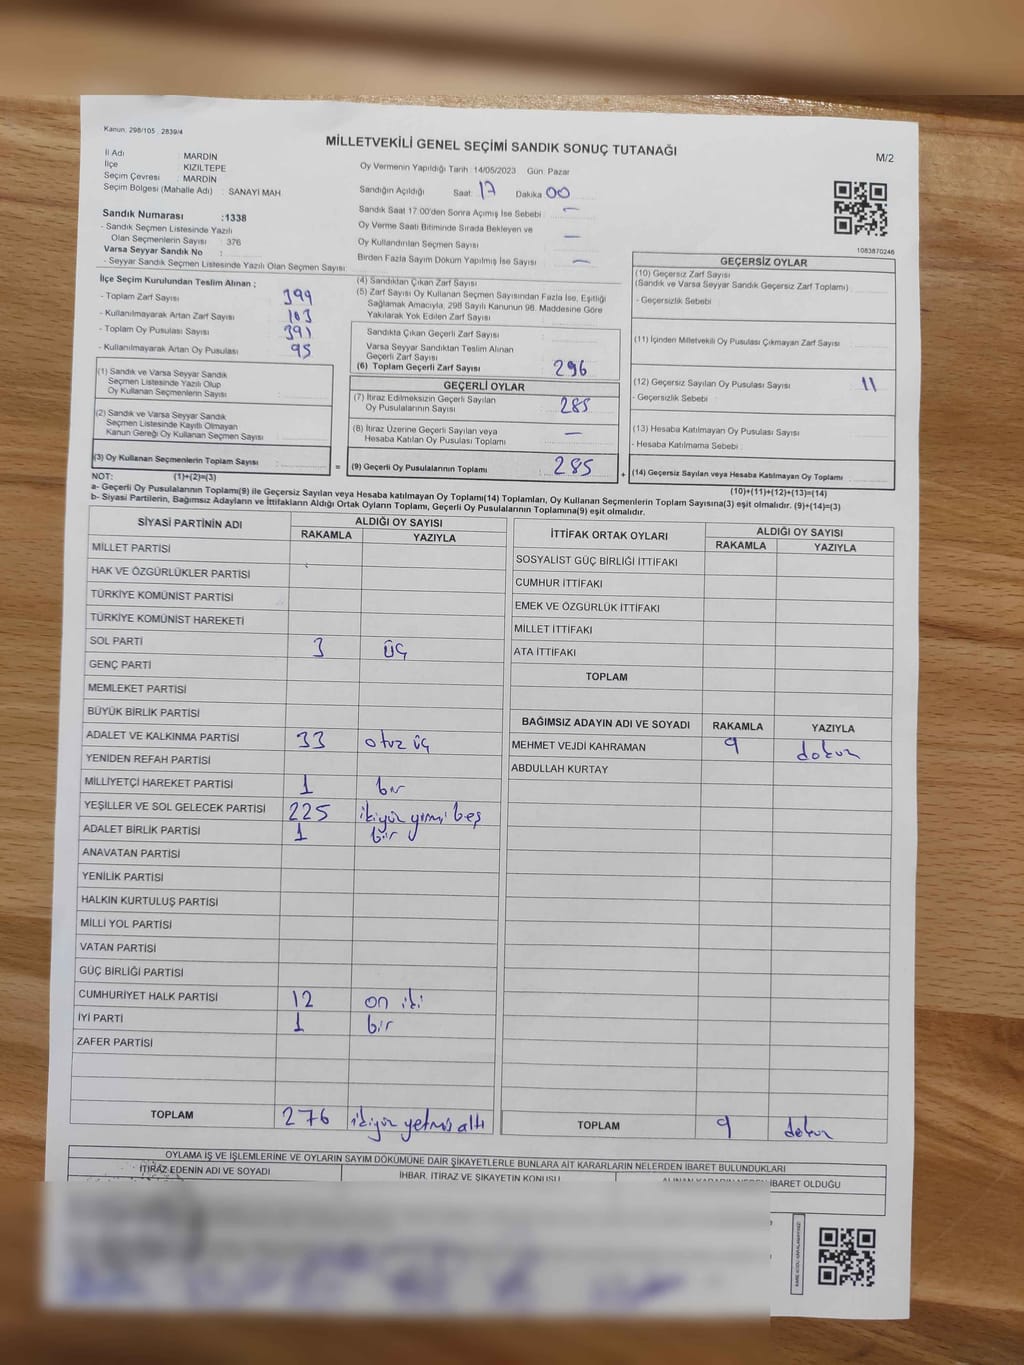 Kanun: 298/105 , 2839/4
MİLLETVEKİLİ GENEL SEÇİMİ SANDIK SONUÇ TUTANAĞI
M/2
İl Adı : MARDİN
İlçe : KIZILTEPE
Seçim Çevresi : MARDİN
Seçim Bölgesi (Mahalle Adı) : SANAYİ MAH.
Oy Vermenin Yapıldığı Tarih : 14/05/2023 Gün: Pazar
Sandığın Açıldığı Saat: 17 Dakika 00
Sandık Numarası : 1338
- Sandık Seçmen Listesinde Yazılı
Olan Seçmenlerin Sayısı : 376
Varsa Seyyar Sandık No :
- Seyyar Sandık Seçmen Listesinde Yazılı Olan Seçmen Sayısı:
Sandık Saat 17:00'den Sonra Açılmış İse Sebebi : —
Oy Verme Saati Bitiminde Sırada Bekleyen ve
Oy Kullandırılan Seçmen Sayısı —
Birden Fazla Sayım Döküm Yapılmış İse Sayısı : —
1083870246
İlçe Seçim Kurulundan Teslim Alınan ;
- Toplam Zarf Sayısı : 399
- Kullanılmayarak Artan Zarf Sayısı : 103
- Toplam Oy Pusulası Sayısı : 391
- Kullanılmayarak Artan Oy Pusulası : 95
(1) Sandık ve Varsa Seyyar Sandık
Seçmen Listesinde Yazılı Olup
Oy Kullanan Seçmenlerin Sayısı :
(2) Sandık ve Varsa Seyyar Sandık
Seçmen Listesinde Kayıtlı Olmayan
Kanun Gereği Oy Kullanan Seçmen Sayısı :
(3) Oy Kullanan Seçmenlerin Toplam Sayısı :
(1)+(2)=(3)
(4) Sandıktan Çıkan Zarf Sayısı :
(5) Zarf Sayısı Oy Kullanan Seçmen Sayısından Fazla İse, Eşitliği
Sağlamak Amacıyla, 298 Sayılı Kanunun 98. Maddesine Göre
Yakılarak Yok Edilen Zarf Sayısı :
Sandıkta Çıkan Geçerli Zarf Sayısı :
Varsa Seyyar Sandıktan Teslim Alınan
Geçerli Zarf Sayısı :
(6) Toplam Geçerli Zarf Sayısı : 296
GEÇERLİ OYLAR
(7) İtiraz Edilmeksizin Geçerli Sayılan
Oy Pusulalarının Sayısı : 285
(8) İtiraz Üzerine Geçerli Sayılan veya
Hesaba Katılan Oy Pusulası Toplamı : —
= (9) Geçerli Oy Pusulalarının Toplamı : 285
GEÇERSİZ OYLAR
(10) Geçersiz Zarf Sayısı
(Sandık ve Varsa Seyyar Sandık Geçersiz Zarf Toplamı) :
- Geçersizlik Sebebi :
(11) İçinden Milletvekili Oy Pusulası Çıkmayan Zarf Sayısı :
(12) Geçersiz Sayılan Oy Pusulası Sayısı : 11
- Geçersizlik Sebebi :
(13) Hesaba Katılmayan Oy Pusulası Sayısı :
- Hesaba Katılmama Sebebi :
+ (14) Geçersiz Sayılan veya Hesaba Katılmayan Oy Toplamı :
(10)+(11)+(12)+(13)=(14)
NOT:
a- Geçerli Oy Pusulalarının Toplamı(9) ile Geçersiz Sayılan veya Hesaba katılmayan Oy Toplamı(14) Toplamları, Oy Kullanan Seçmenlerin Toplam Sayısına(3) eşit olmalıdır. (9)+(14)=(3)
b- Siyasi Partilerin, Bağımsız Adayların ve İttifakların Aldığı Ortak Oyların Toplamı, Geçerli Oy Pusulalarının Toplamına(9) eşit olmalıdır.
SİYASİ PARTİNİN ADI ALDIĞI OY SAYISI
RAKAMLA YAZIYLA
MİLLET PARTİSİ
HAK VE ÖZGÜRLÜKLER PARTİSİ
TÜRKİYE KOMÜNİST PARTİSİ
TÜRKİYE KOMÜNİST HAREKETİ
SOL PARTİ 3 üç
GENÇ PARTİ
MEMLEKET PARTİSİ
BÜYÜK BİRLİK PARTİSİ
ADALET VE KALKINMA PARTİSİ 33 otuz üç
YENİDEN REFAH PARTİSİ
MİLLİYETÇİ HAREKET PARTİSİ 1 bir
YEŞİLLER VE SOL GELECEK PARTİSİ 225 ikiyüz yirmi beş
ADALET BİRLİK PARTİSİ 1 bir
ANAVATAN PARTİSİ
YENİLİK PARTİSİ
HALKIN KURTULUŞ PARTİSİ
MİLLİ YOL PARTİSİ
VATAN PARTİSİ
GÜÇ BİRLİĞİ PARTİSİ
CUMHURİYET HALK PARTİSİ 12 on iki
İYİ PARTİ 1 bir
ZAFER PARTİSİ
TOPLAM 276 ikiyüz yetmiş altı
İTTİFAK ORTAK OYLARI ALDIĞI OY SAYISI
RAKAMLA YAZIYLA
SOSYALİST GÜÇ BİRLİĞİ İTTİFAKI
CUMHUR İTTİFAKI
EMEK VE ÖZGÜRLÜK İTTİFAKI
MİLLET İTTİFAKI
ATA İTTİFAKI
TOPLAM
BAĞIMSIZ ADAYIN ADI VE SOYADI RAKAMLA YAZIYLA
MEHMET VEJDİ KAHRAMAN 9 dokuz
ABDULLAH KURTAY
TOPLAM 9 dokuz
OYLAMA İŞ VE İŞLEMLERİNE VE OYLARIN SAYIM DÖKÜMÜNE DAİR ŞİKAYETLERLE BUNLARA AİT KARARLARIN NELERDEN İBARET BULUNDUKLARI
İTİRAZ EDENİN ADI VE SOYADI İHBAR, İTİRAZ VE ŞİKAYETİN KONUSU ALINAN KARARIN NEDEN İBARET OLDUĞU